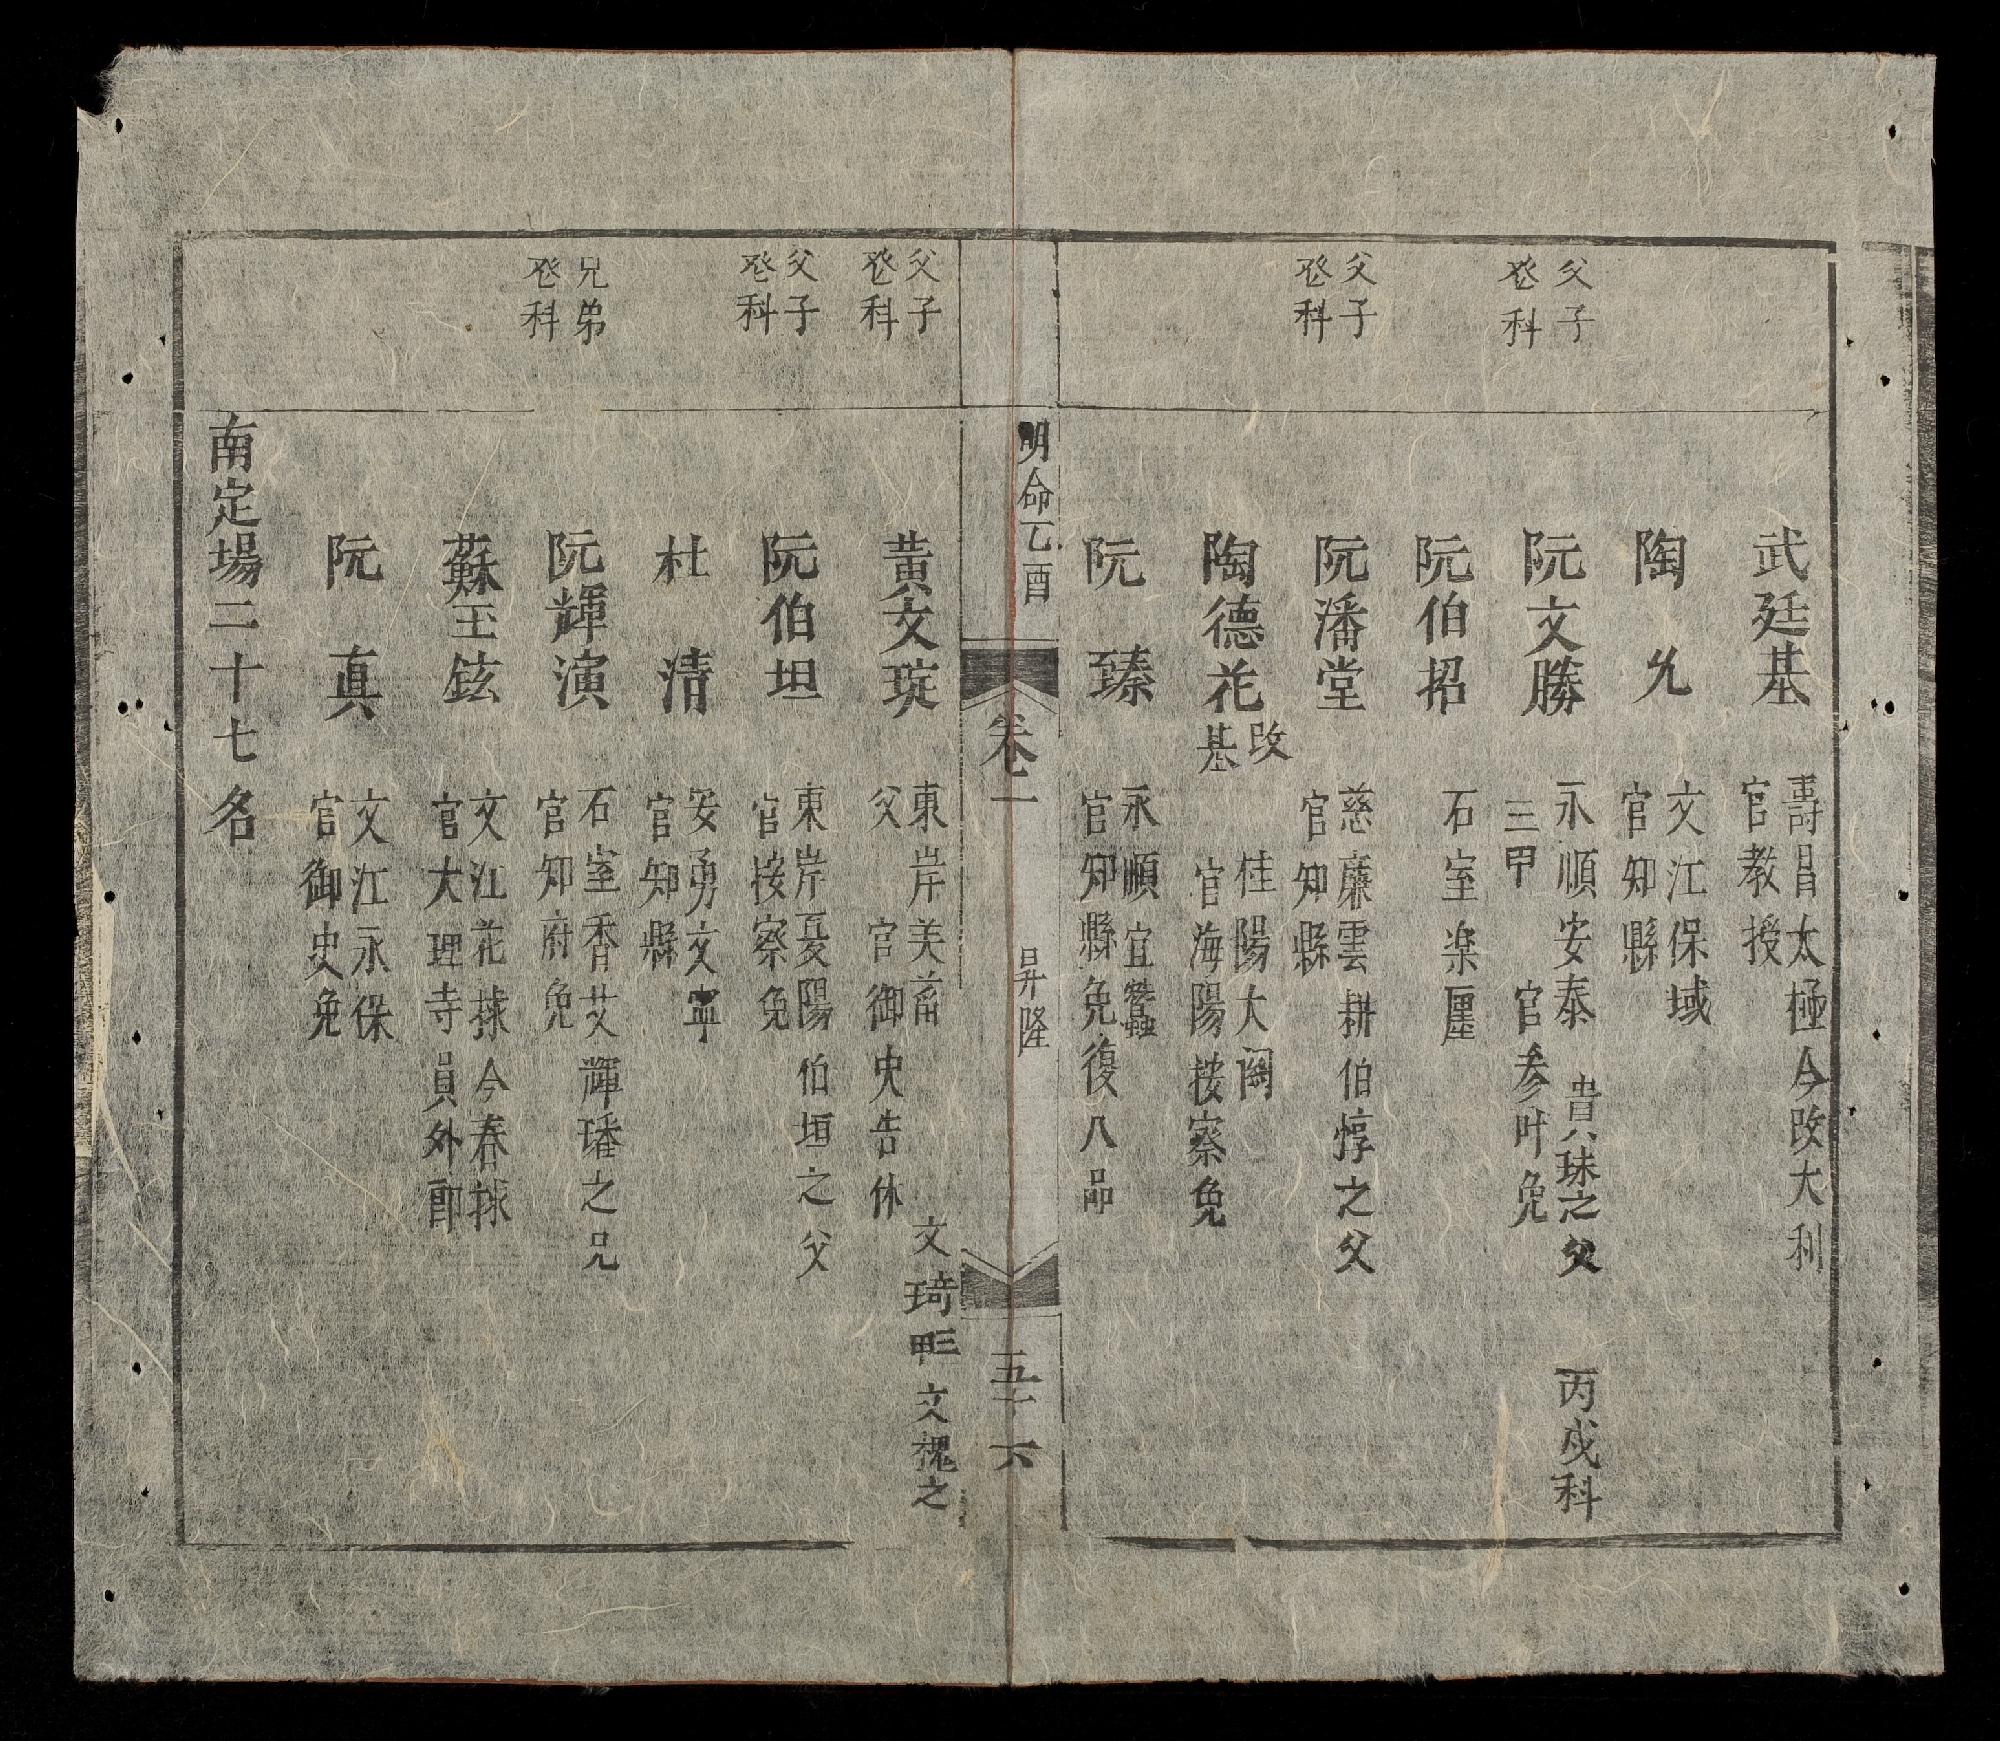 武廷基
壽昌太極今改大利
官教授
陶允
文江保域
官知縣
父子
登科
阮文勝
永順安泰 貴珠之父 丙戌科
三甲 官参叶免
阮伯招
石室楽厘
父子
登科
阮潘堂
慈廉雲耕伯惇之父
官知縣
陶德花
改
基
佳陽大閣
官海陽按察免
阮臻
永順宜蠶
官知縣免復八品
明命乙酉
卷一
昇隆
五十六
父子
登科
黄文琔
東岸芙蓄 文琦三甲 文槐之
父 官御史告休
父子
登科
阮伯坦
東岸憂陽伯垣之父
官按察免
杜清
安勇文寧
官知縣
兄弟
登科
阮輝演
石室香艾輝璠之兄
官知府免
蘇玉鉉
文江花捄今春捄
官大理寺員外郎
阮真
文江永保
官御史免
南定場二十七名